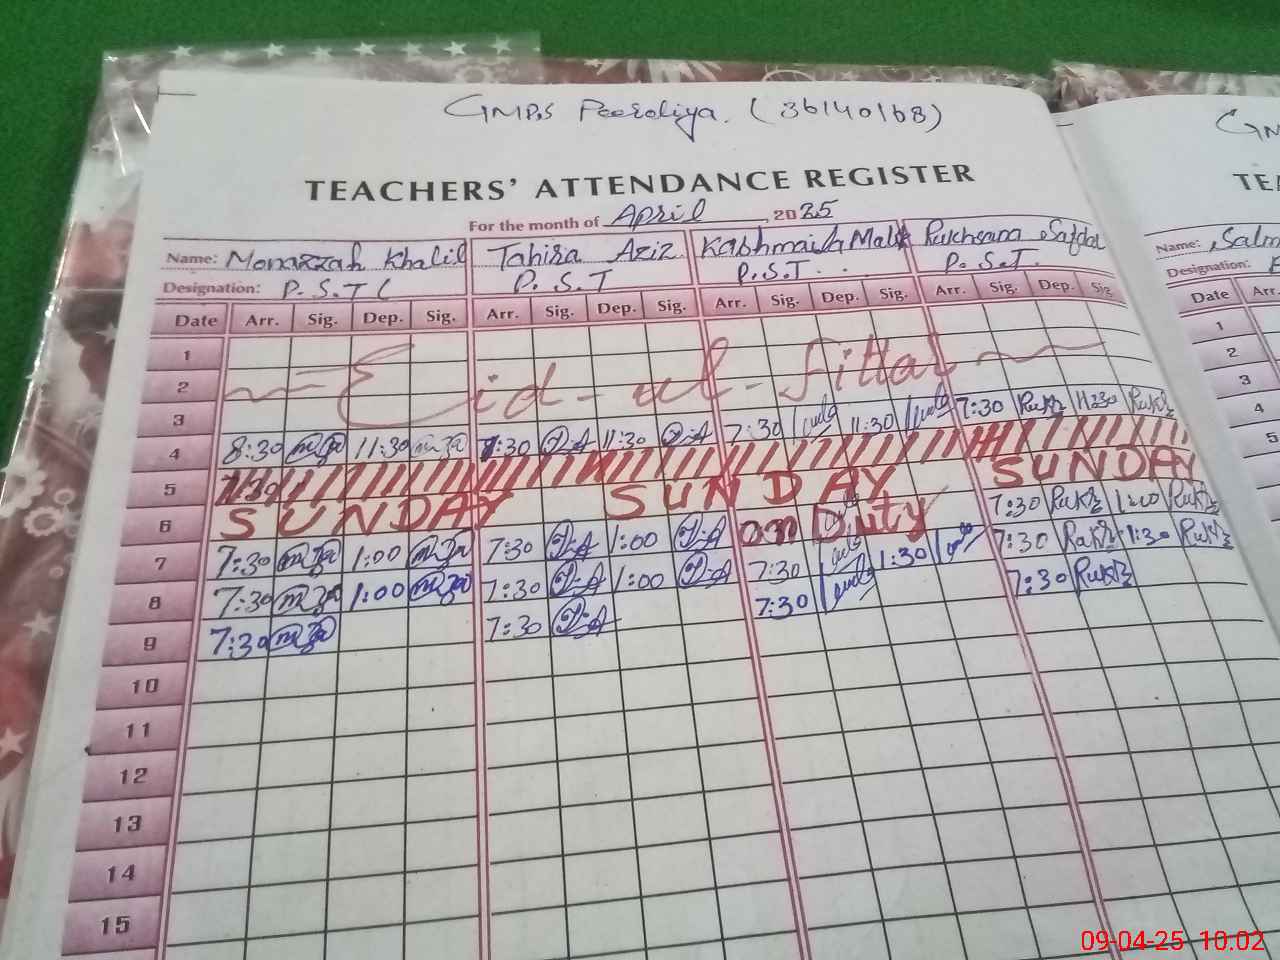 GMPS Peeroliya. (36140168)
G
TEACHERS' ATTENDANCE REGISTER
TE
For the month of April, 2025
Name: Monazzah Khalil Tahira Aziz Kashmala Malik Rukhsana Safdar
Designation: P.S.T P.S.T P.S.T. P.S.T.
Name: Salm
Designation:
Date Arr. Sig. Dep. Sig. Arr. Sig. Dep. Sig. Arr. Sig. Dep. Sig. Arr. Sig. Dep. Sig.
Date Arr.
1
2 Eid-ul-fittar
3
4 8:30 11:30 7:30 11:30 7:30 11:30 7:30 Rukh 11:30 Rukh
5 7:30
6 SUNDAY SUNDAY SUNDAY
7 7:30 1:00 7:30 1:00 On Duty 7:30 Rukh 1:00 Rukh
8 7:30 1:00 7:30 1:00 7:30 1:30 7:30 Rukh 1:30 Rukh
9 7:30 7:30 7:30 7:30 Rukh
10
11
12
13
14
15
1
2
3
4
5
09-04-25 10.02